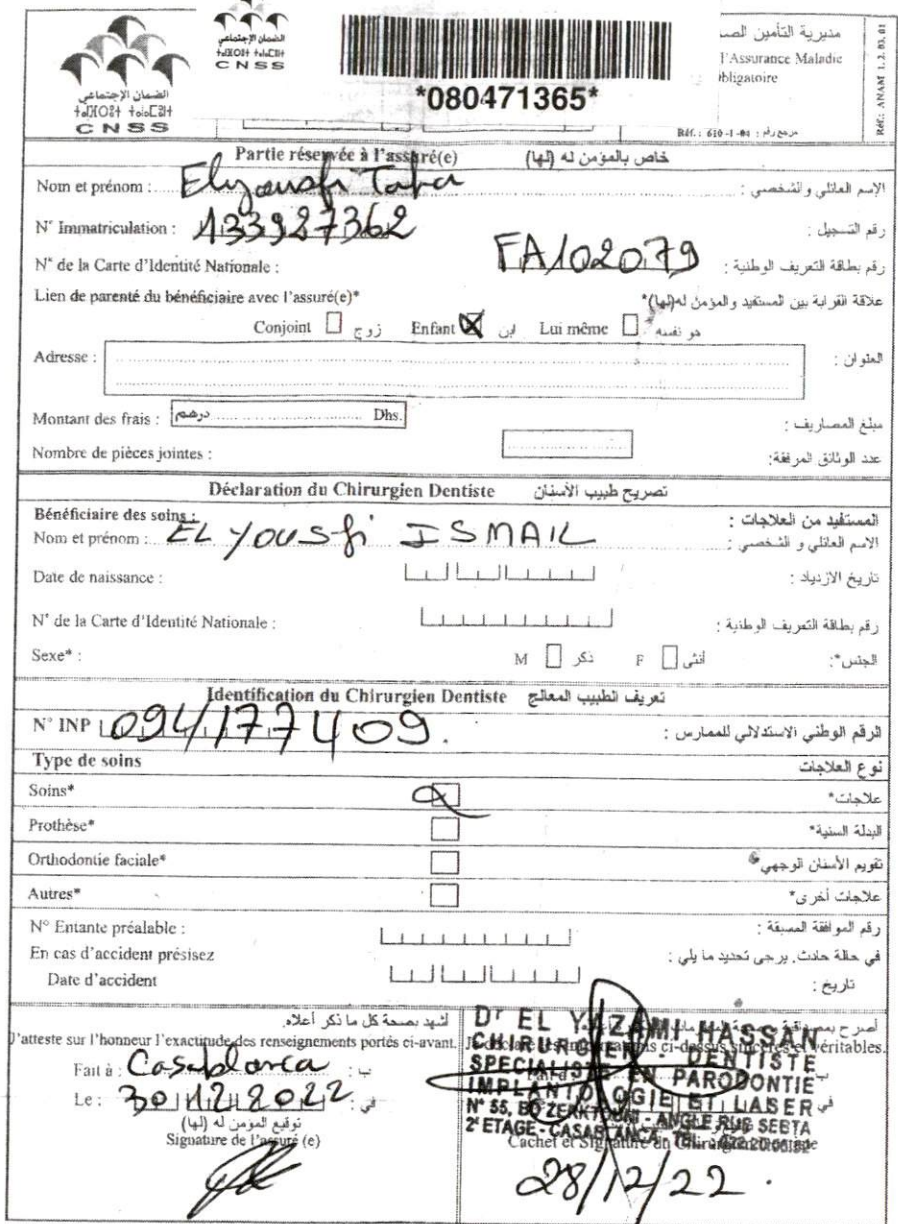 الضمان الاجتماعي
ⵜⴰⵎⵏⵙⵓⵜ ⵜⴰⵏⴰⵎⵓⵏⵜ
CNSS
الضمان الإجتماعي
CNSS
*080471365*
مديرية التأمين الصـ
l'Assurance Maladie
Obligatoire
Réf.: 610 -1 -04 : مرجع رقم
Réf.: ANAM 1. 2. 03. 01
Partie réservée à l'assuré(e) خاص بالمؤمن له (لها)
Nom et prénom : Elyousfi Taha الإسم العائلي والشخصي :
N° Immatriculation : 133927362 رقم التسجيل :
N° de la Carte d'Identité Nationale : FA102079 رقم بطاقة التعريف الوطنية :
Lien de parenté du bénéficiaire avec l'assuré(e)* علاقة القرابة بين المستفيد والمؤمن له(لها)*
Conjoint زوج Enfant ابن Lui même هو نفسه
Adresse : العنوان :
Montant des frais : درهم Dhs. مبلغ المصاريف :
Nombre de pièces jointes : عدد الوثائق المرفقة:
Déclaration du Chirurgien Dentiste تصريح طبيب الأسنان
Bénéficiaire des soins : المستفيد من العلاجات :
Nom et prénom : EL YOUSfi ISMAIL الاسم العائلي و الشخصي :
Date de naissance : تاريخ الازدياد :
N° de la Carte d'Identité Nationale : رقم بطاقة التعريف الوطنية :
Sexe* : M ذكر F أنثى الجنس*:
Identification du Chirurgien Dentiste تعريف الطبيب المعالج
N° INP 094177409. الرقم الوطني الاستدلالي للممارس :
Type de soins نوع العلاجات
Soins* علاجات*
Prothèse* البدلة السنية*
Orthodontie faciale* تقويم الأسنان الوجهي*
Autres* علاجات أخرى*
N° Entante préalable : رقم الموافقة المسبقة :
En cas d'accident présisez في حالة حادث, يرجى تحديد ما يلي :
Date d'accident تاريخ :
أشهد بصحة كل ما ذكر أعلاه.
J'atteste sur l'honneur l'exactitude des renseignements portés ci-avant.
Fait à : Casablanca ب :
Le : 30122022 في :
توقيع المؤمن له (لها)
Signature de l'assuré (e)
أصرح
ci-dessus sincères et véritables.
Dr EL YAZAMI HASSAN
CHIRURGIEN DENTISTE
SPECIALISTE EN PARODONTIE
IMPLANTOLOGIE ET LASER
N° 55, BD ZERKTOUNI - ANGLE RUE SEBTA
2° ETAGE - CASABLANCA -
Cachet et Signature du Chirurgien Dentiste
28/12/22.